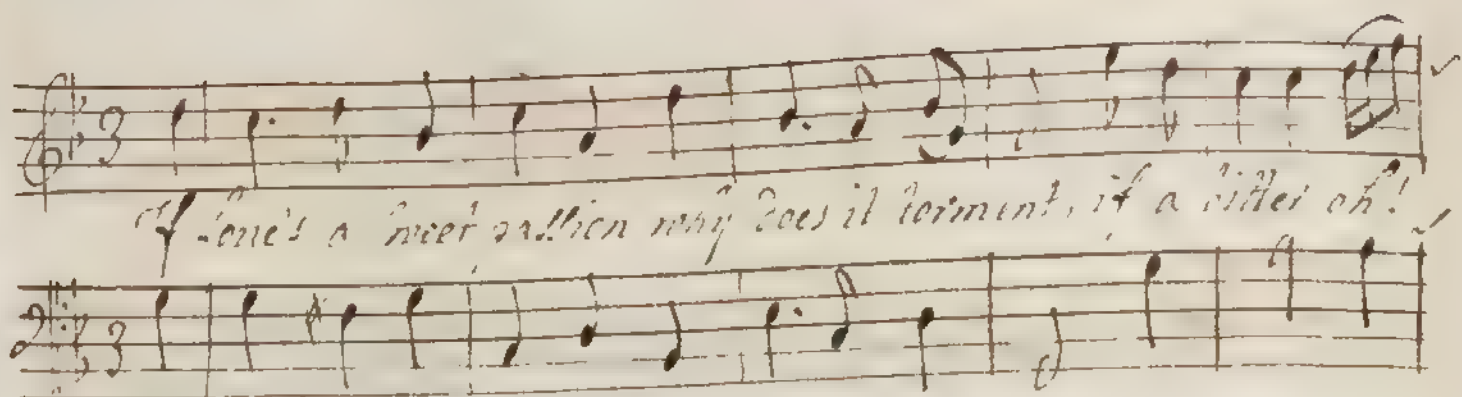 3
If Love's a sweet passion why does it torment, if a bitter oh!
3